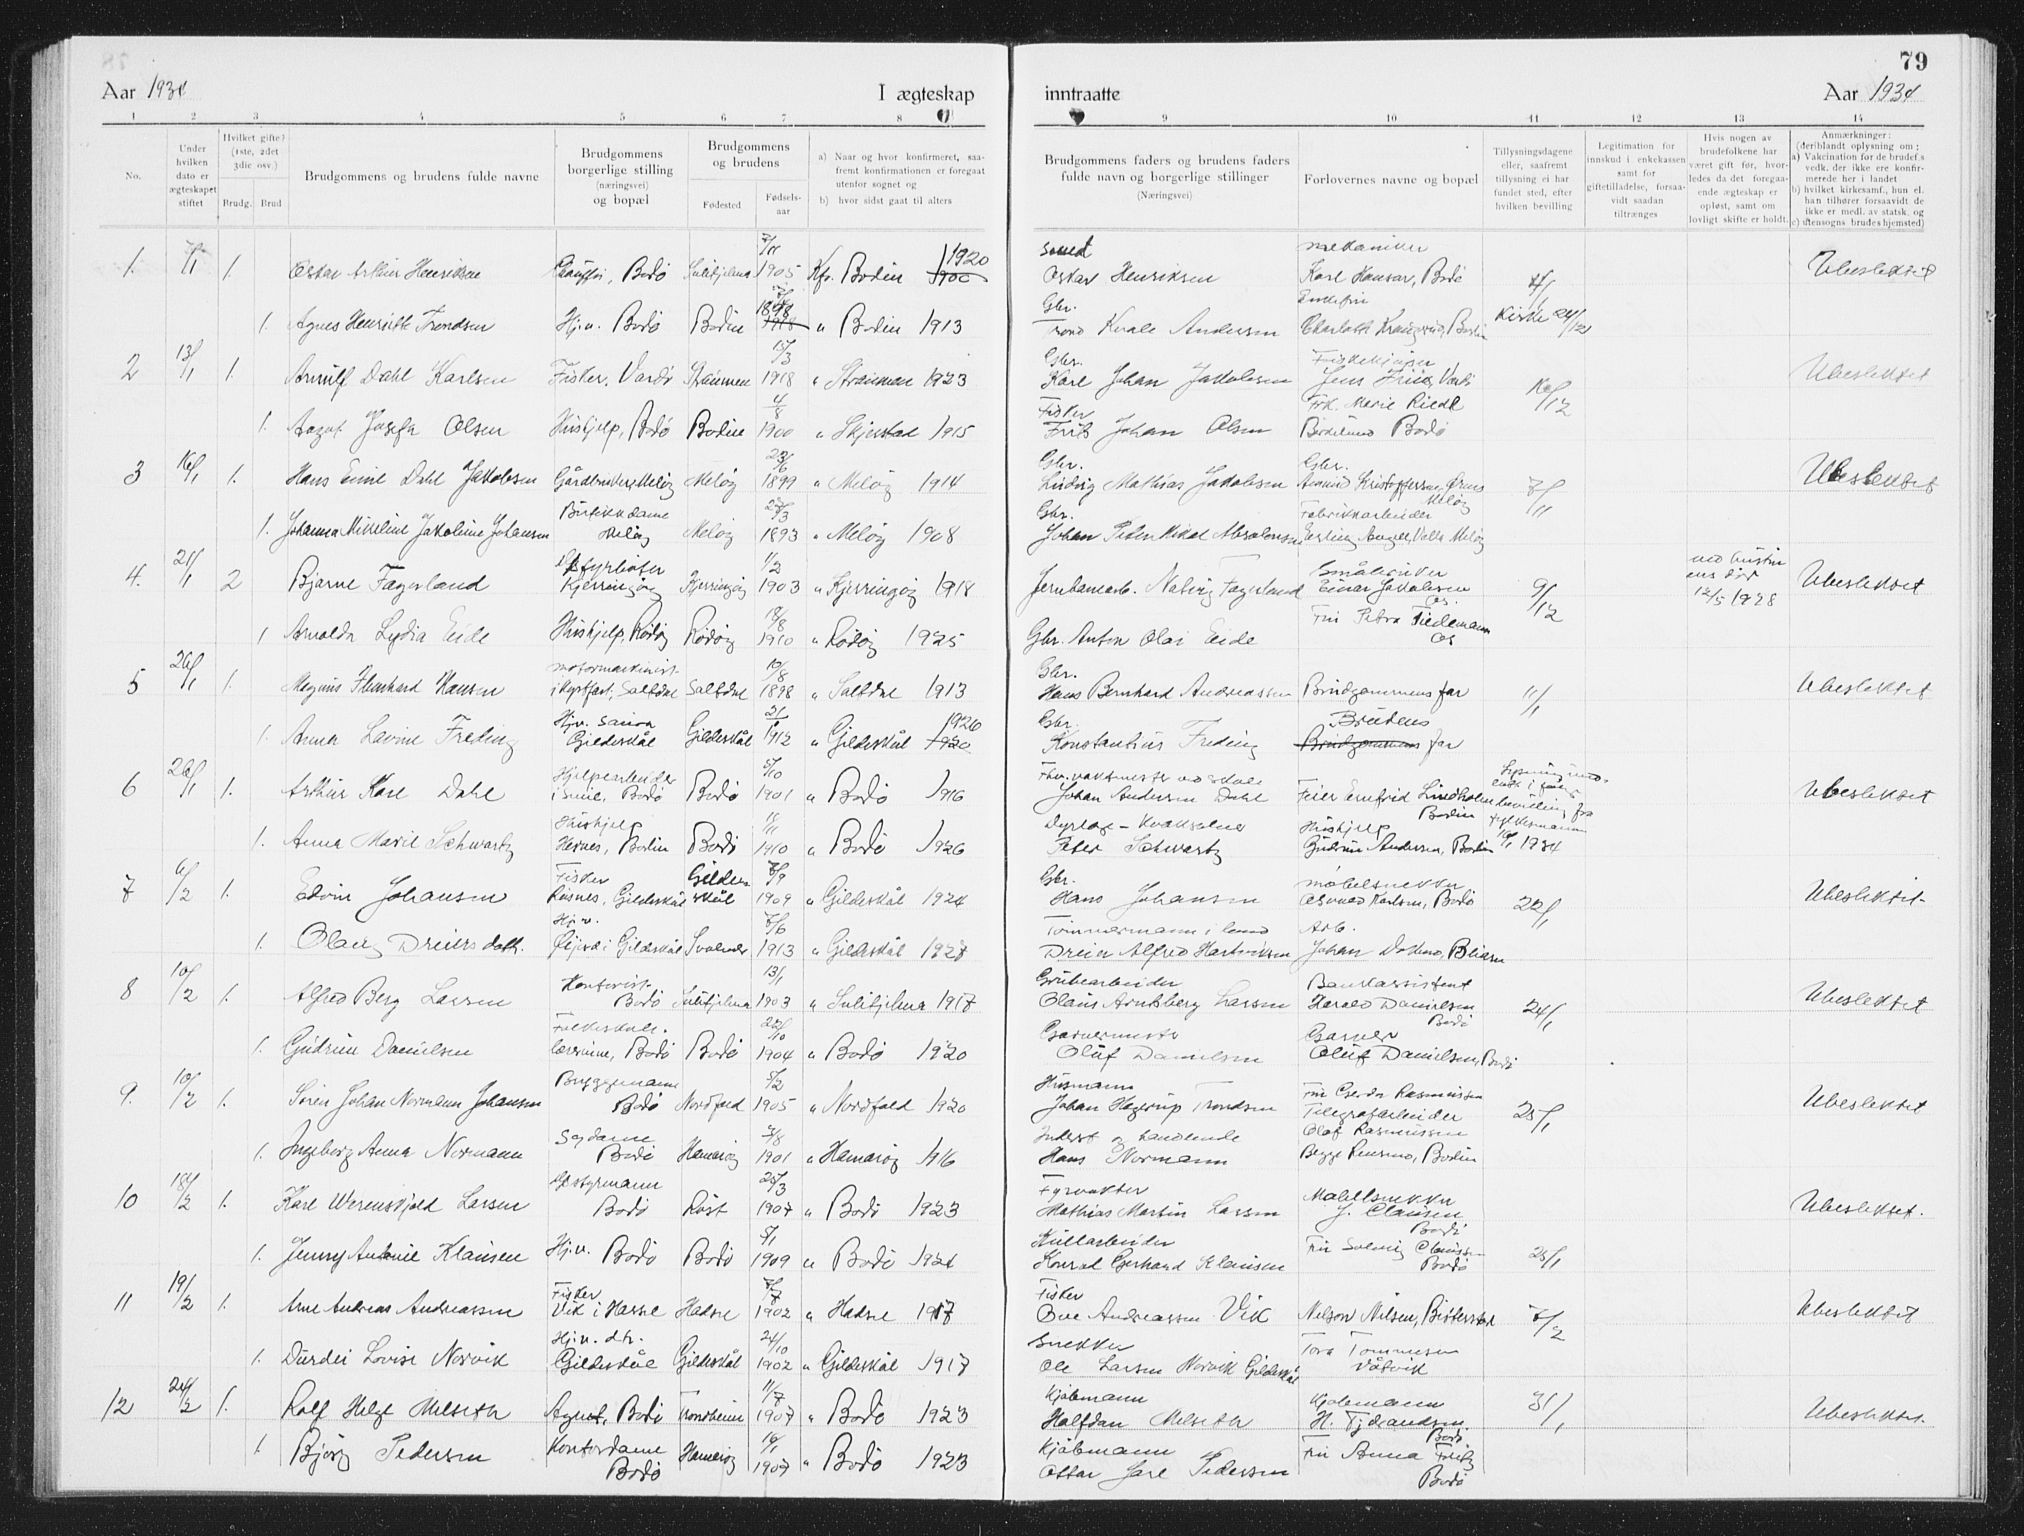 79
Aar 1934
I ægteskap
inntraatte
Aar 1934
1 2 3 4 5 6 7 8
9 10 11 12 13 14
No.
Under hvilken dato er ægteskapet stiftet
Hvilket gifte? (1ste, 2det 3die osv.)
Brudg. Brud
Brudgommens og brudens fulde navne
Brudgommens borgerlige stilling (næringsvei) og bopæl
Brudgommens og brudens
Fødested
Fødsels-aar
a) Naar og hvor konfirmeret, saafremt konfirmationen er foregaat utenfor sognet og
b) hvor sidst gaat til alters
Brudgommens faders og brudens faders fulde navn og borgerlige stillinger
(Næringsvei)
Forlovernes navne og bopæl
Tillysningsdagene eller, saafremt tillysning ei har fundet sted, efter hvilken bevilling
Legitimation for innskud i enkekassen samt for giftetilladelse, forsaavidt saadan tiltrænges
Hvis nogen av brudefolkene har været gift før, hvorledes da det foregaaende ægteskap er opløst, samt om lovligt skifte er holdt.
Anmærkninger: (deriblandt oplysning om;
a) Vakcination for de brudef.s vedk. der ikke ere konfirmerede her i landet
b) hvilket kirkesamf., hun el. han tilhører forsaavidt de ikke er medl. av statsk. og
c) utensogns brudes hjemsted)
1. 1. Oskar Arthur Henriksen Chauffør, Bodø Sulitjelma 1905 Kfr. Bodin 1920
Smed Oskar Henriksen mekaniker Karl Hansen, Bodø Ubeslektet
1. Agnes Henrikke Trondsen Hj.v. Bodø Bodin 1898 " Bodin 1913
Gbr. Trond Kvale Andersen Kirke 24/12
2 13/1 1. Arnulf Dahl Karlsen Fisker, Vardø Straumen 15/3 1918 " Straumen 1923
Gbr. Karl Johan Jakobsen Jens Friis, Vardø 16/12 Ubeslektet
1. Aagot Josefa Olsen Hushjelp, Bodø Bodin 4/8 1900 " Skjerstad 1915
Fisker Frits Johan Olsen Frk. Marie Riedl Bodø
3 16/1 1. Hans Emil Dahl Jakobsen Gårdbruker, Meløy Meløy 23/6 1899 " Meløy 1914
Gbr. Ludvig Mathias Jakobsen Gbr. Kristoffersen, Ørnes Meløy 7/11 Ubeslektet
1. Johanna Mikeline Jakobine Johansen Butikkdame Meløy Meløy 27/3 1893 " Meløy 1908
Gbr. Johan Peter Mikal Absalonsen Fabrikkarbeider Meløy
4. 21/1 2 Bjarne Fagerland Styrhuser Kjerringøy Kjerringøy 1/2 1903 " Kjerringøy 1918
Jernbanearb. Fagerland Småbruker Einar Jakobsen Os. 9/12 ved hustruens død 12/5 1928 Ubeslektet
1 Arnolda Lydia Eide Hushjelp, Rødøy Rødøy 18/8 1910 " Rødøy 1925
Gbr. Anton Olai Eide Fru Petra Tiedemann Os
5 26/1 1. Magnus Ehrnhard Hansen motormaskinist i kystfart, Saltdal Saltdal 10/8 1898 " Saltdal 1913
Gbr. Hans Bernhard Andreassen Brudgommens far 11/1 Ubeslektet
1. Anna Lavine Freding Hj.v. Gildeskål Gildeskål 21/1 1912 " Gildeskål 1926
Gbr. Konstantius Freding Brudens far
6 26/1 1. Arthur Karl Dahl Hjelpearbeider i smie, Bodø Bodø 5/10 1901 " Bodø 1916
Fhv. vaktmester ved skole Johan Andersen Dahl Feier Ernfrid Lindholm Bodin Ubeslektet
1. Anna Marie Schwartz Hushjelp Hernes, Bodin Bodø 18/11 1910 " Bodø 1926
Dyrlæge - kvaksalver Peter Schwartz Hushjelp Gudrun Andersen, Bodin 16/1 1934
7 6/2 1. Edvin Johansen Fisker Gildeskål Gildeskål 1909 " Gildeskål 1924
Gbr. Hans Johansen møbelsnekker Osvald Karlsen, Bodø 22/1 Ubeslektet
1. Olaug Dreiersdatt. Hj.v. Gildeskål Svolvær 7/6 1913 " Gildeskål 1928
Tømmermann i land Dreier Alfred Hartviksen Arb. Johan
8 10/2 1. Alfred Berg Larsen Kontorist Bodø Sulitjelma 13/1 1903 " Sulitjelma 1917
Grubearbeider Olaus Arntsberg Larsen Bankassistent Harald Danielsen Bodø 24/1 Ubeslektet
1. Gudrun Danielsen Folkeskole lærerinne, Bodø Bodø 22/10 1904 " Bodø 1920
Garvermester Oluf Danielsen Garver Oluf Danielsen, Bodø
9. 10/2 1. Søren Johan Normann Johansen Bryggemann Bodø Nordfold 5/2 1905 " Nordfold 1920
Husmann Johan Hagerup Trondsen Fru Gerda Rasmussen 25/1 Ubeslektet
1. Ingeborg Anna Normann Sydame Bodø Hamarøy 7/8 1901 " Hamarøy 1916
Inderst og handlende Hans Normann Telegrafarbeider Olaf Rasmussen Begge Bodin
10 18/2 1. Karl Werenskjold Larsen Styrmann Bodø Røst 25/3 1907 " Bodø 1923
Fyrvokter Mathias Martin Larsen Møbelsnekker J. Clausen Bodø Ubeslektet.
1. Jenny Antonie Klausen Hj.v. Bodø Bodø 5/1 1909 " Bodø 1924
Kullarbeider Konrad Gerhard Klausen Fru Solveig Clausen Bodø 25/1
11 19/2 1. Arne Andreas Andreassen Fisker Vik i Hadsel Hadsel 7/7 1902 " Hadsel 1917
Fisker Ove Andreassen Vik Nelson Nilsen, 7/2 Ubeslektet
1. Durdei Lovise Norvik Hj.v. dtr. Gildeskål Gildeskål 24/10 1902 " Gildeskål 1917
Snekker Ole Larsen Norvik Gildeskål Tora Tommesen
12 24/2 1. Rolf Helge Melseth Agent, Bodø Trondheim 11/7 1907 " Bodø 1923
Kjøbmann Halfdan Melseth Kjøbmann H. Tjærandsen Bodø 31/1 Ubeslektet.
1. Bjørg Pedersen Kontordame Bodø Hamarøy 16/1 1907 " Bodø 1923
Kjøbmann Ottar Jarl Pedersen Fru Anna Bodø